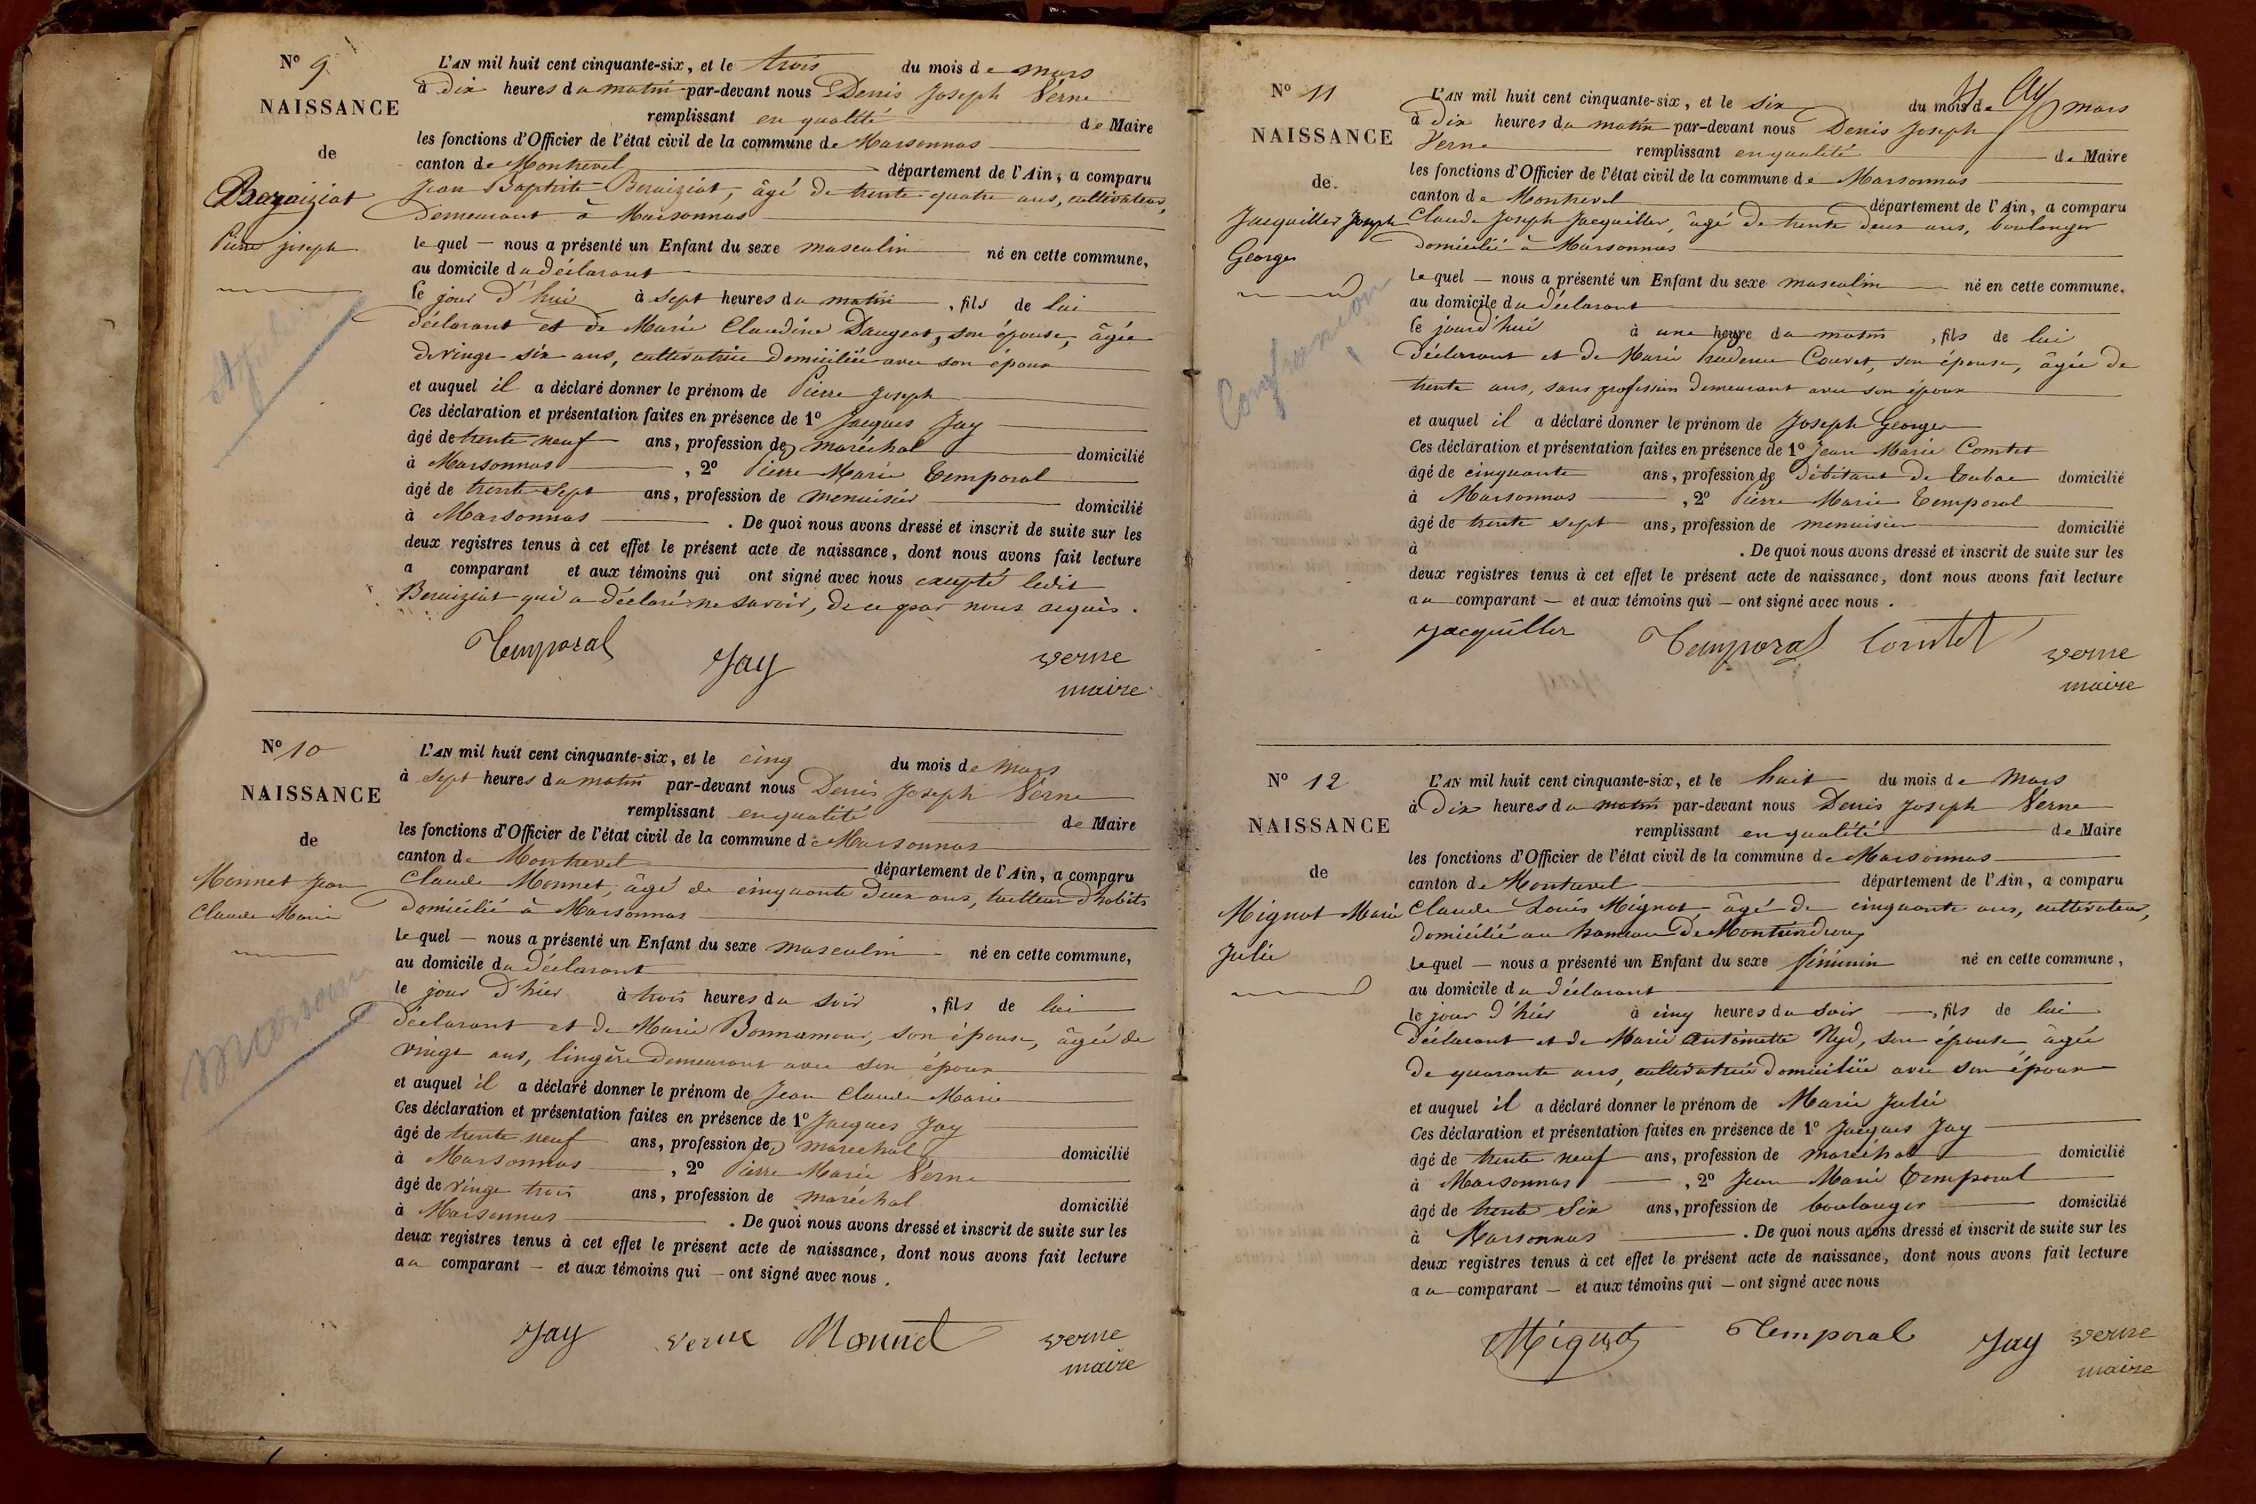 N° 9
NAISSANCE
de
Beraiziat
Pierre joseph
L'AN mil huit cent cinquante-six, et le trois du mois de mars
à Dix heures du matin par-devant nous Denis Joseph Verne
remplissant en qualité de Maire
les fonctions d'Officier de l'état civil de la commune de Marsonnas
canton de Montrevel département de l'Ain, a comparu
Jean Baptiste Beraiziat, âgé de trente quatre ans, cultivateur,
demeurant à Marsonnas
lequel — nous a présenté un Enfant du sexe masculin né en cette commune,
au domicile du déclarant
le jour d'hui à sept heures du matin, fils de lui
déclarant et de Marie Claudine Daujeat, son épouse, âgée
de vingt six ans, cultivatrice domiciliée avec son époux
et auquel il a déclaré donner le prénom de Pierre Joseph
Ces déclaration et présentation faites en présence de 1° Jacques Jay
âgé de trente neuf ans, profession de maréchal domicilié
à Marsonnas, 2° Pierre Marie Temporal
âgé de trente sept ans, profession de menuisier domicilié
à Marsonnas. De quoi nous avons dressé et inscrit de suite sur les
deux registres tenus à cet effet le présent acte de naissance, dont nous avons fait lecture
a comparant et aux témoins qui ont signé avec nous excepté ledit
Beraiziat qui a déclaré ne savoir, de ce par nous requis.
Temporal Jay verne
maire
N° 10
NAISSANCE
de
Monnet Jean
Claude Marie
marsonn
L'AN mil huit cent cinquante-six, et le cinq du mois de Mars
à sept heures du matin par-devant nous Denis Joseph Verne
remplissant en qualité de Maire
les fonctions d'Officier de l'état civil de la commune de Marsonnas
canton de Montrevel département de l'Ain, a comparu
Claude Monnet, âgé de cinquante deux ans, tailleur d'habits
domicilié à Marsonnas
lequel — nous a présenté un Enfant du sexe masculin né en cette commune,
au domicile du déclarant
le jour d'hier à trois heures du soir, fils de lui
déclarant et de Marie Bonnamour, son épouse, âgée de
vingt ans, lingère demeurant avec son époux
et auquel il a déclaré donner le prénom de Jean Claude Marie
Ces déclaration et présentation faites en présence de 1° Jacques Jay
âgé de trente neuf ans, profession de maréchal domicilié
à Marsonnas, 2° Pierre Marie Verne
âgé de vingt trois ans, profession de maréchal domicilié
à Marsonnas. De quoi nous avons dressé et inscrit de suite sur les
deux registres tenus à cet effet le présent acte de naissance, dont nous avons fait lecture
au comparant — et aux témoins qui — ont signé avec nous.
Jay verne Monnet verne
maire
N° 11
NAISSANCE
de
Jacquiller Joseph
Georges
Confrancon
L'AN mil huit cent cinquante-six, et le six du mois de mars
à Dix heures du matin par-devant nous Denis Joseph
Verne remplissant en qualité de Maire
les fonctions d'Officier de l'état civil de la commune de Marsonnas
canton de Montrevel département de l'Ain, a comparu
Claude Joseph Jacquiller, âgé de trente deux ans, boulanger
domicilié à Marsonnas
lequel — nous a présenté un Enfant du sexe masculin né en cette commune,
au domicile du déclarant
le jourd'hui à une heure du matin, fils de lui
déclarant et de Marie Prudence Couvet, son épouse, âgée de
trente ans, sans profession demeurant avec son époux
et auquel il a déclaré donner le prénom de Joseph Georges
Ces déclaration et présentation faites en présence de 1° Jean Marie Comtet
âgé de cinquante ans, profession de Débitant de tabac domicilié
à Marsonnas, 2° Pierre Marie Temporal
âgé de trente sept ans, profession de menuisier domicilié
à. De quoi nous avons dressé et inscrit de suite sur les
deux registres tenus à cet effet le présent acte de naissance, dont nous avons fait lecture
au comparant — et aux témoins qui — ont signé avec nous.
Jacquiller Temporal Comtet verne
maire
N° 12
NAISSANCE
de
Mignot Marie
Julie
L'AN mil huit cent cinquante-six, et le huit du mois de Mars
à Dix heures du matin par-devant nous Denis Joseph Verne
remplissant en qualité de Maire
les fonctions d'Officier de l'état civil de la commune de Marsonnas
canton de Montrevel département de l'Ain, a comparu
Claude Louis Mignot, âgé de cinquante ans, cultivateur,
domicilié au hameau de Montaindroux
lequel — nous a présenté un Enfant du sexe féminin né en cette commune,
au domicile du déclarant
le jour d'hier à cinq heures du soir, fils de lui
déclarant et de Marie antoinette Nyd, son épouse âgée
de quarante ans, cultivatrice domiciliée avec son époux
et auquel il a déclaré donner le prénom de Marie Julie
Ces déclaration et présentation faites en présence de 1° Jacques Jay
âgé de trente neuf ans, profession de maréchal domicilié
à Marsonnas, 2° Jean Marie Temporal
âgé de trente six ans, profession de boulanger domicilié
à Marsonnas. De quoi nous avons dressé et inscrit de suite sur les
deux registres tenus à cet effet le présent acte de naissance, dont nous avons fait lecture
au comparant — et aux témoins qui — ont signé avec nous
Mignot Temporal Jay verne
maire